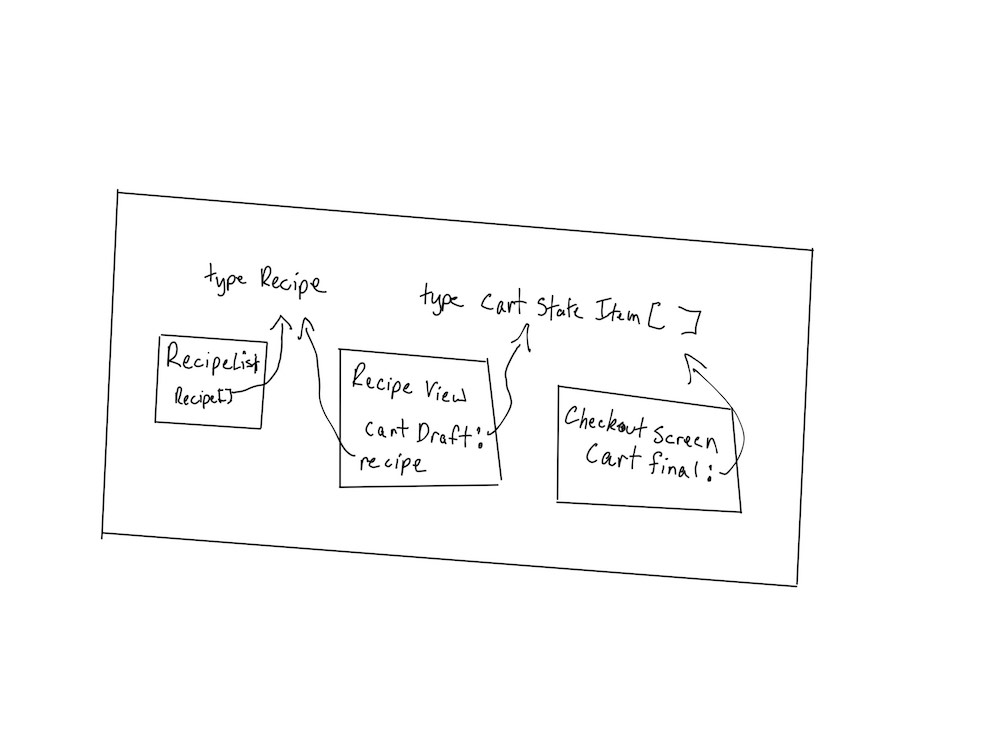 type Recipe
type Cart State Item[ ]
RecipeList
Recipe[]
Recipe View
Cart Draft:
recipe
Checkout Screen
Cart final: